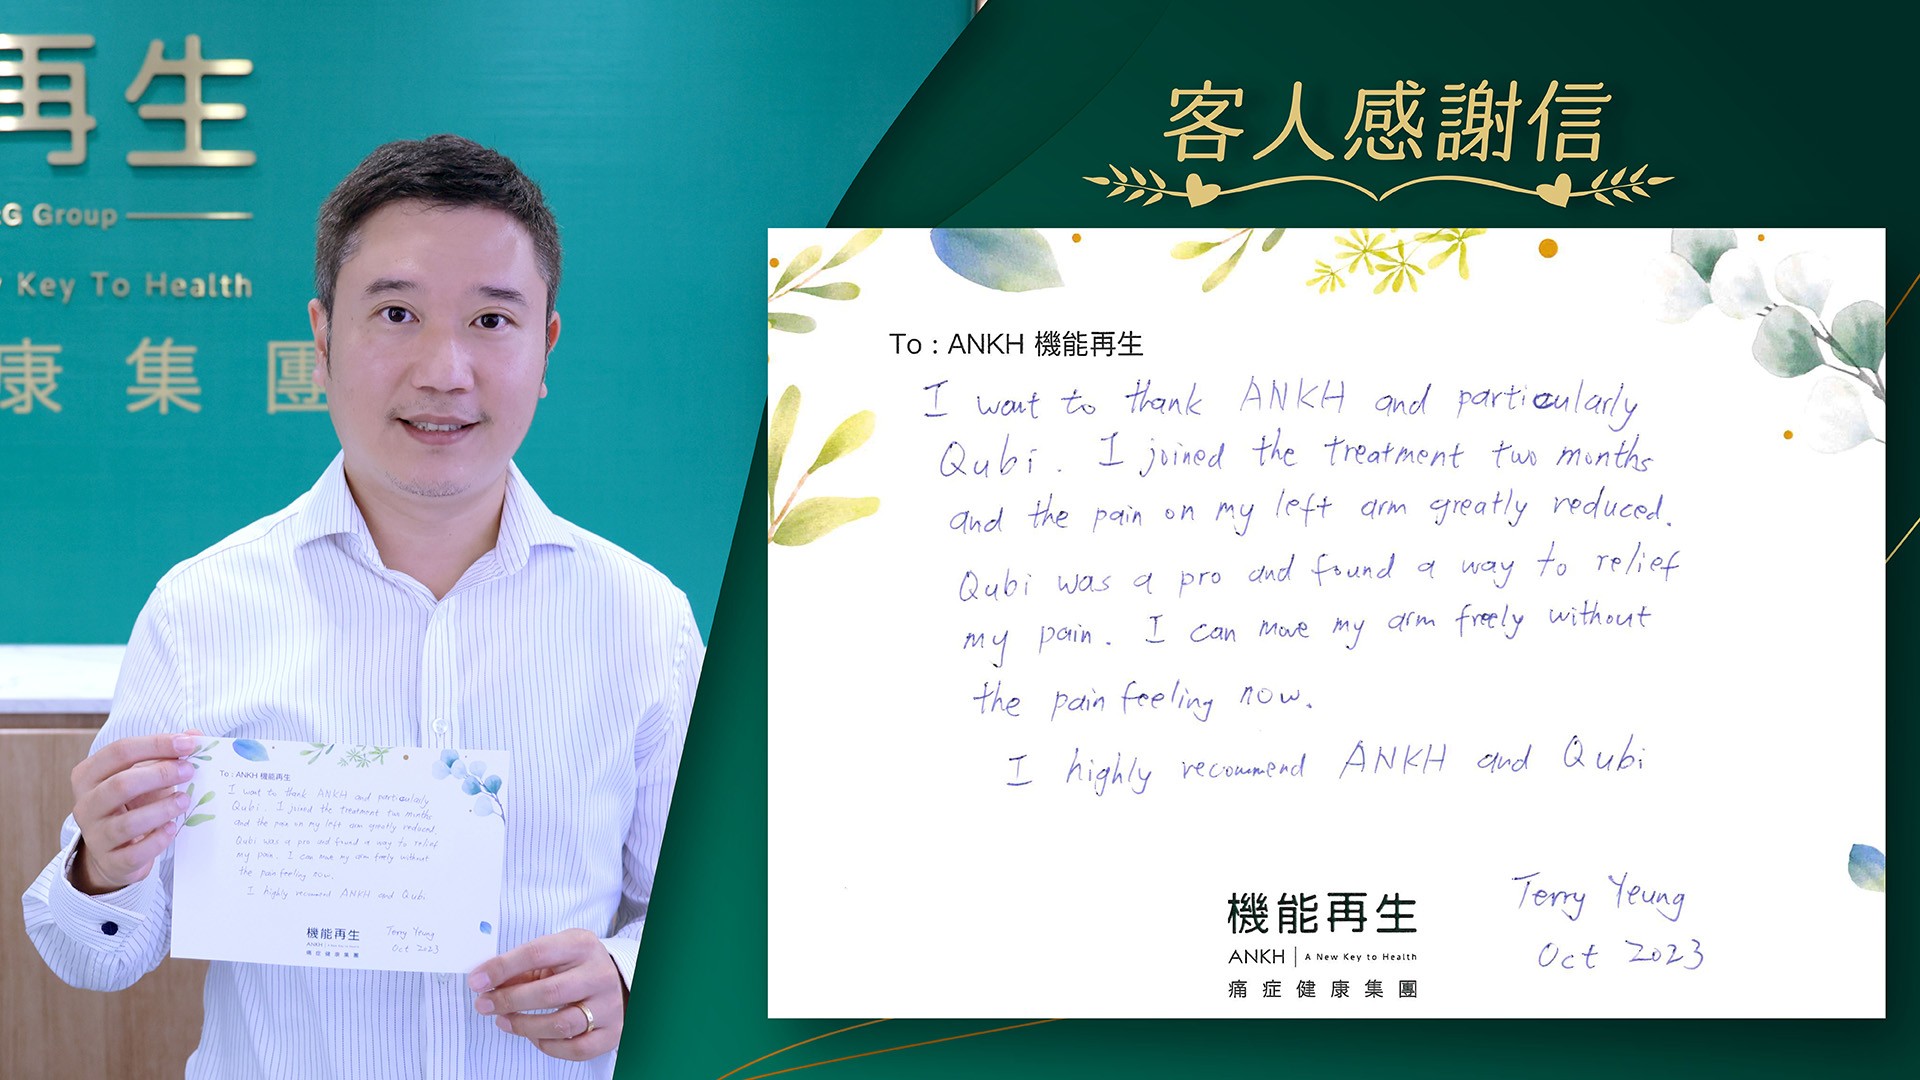 再生
G Group
Key To Health
康集團
客人感謝信
To : ANKH 機能再生
I want to thank ANKH and particularly
Qubi. I joined the treatment two months
and the pain on my left arm greatly reduced.
Qubi was a pro and found a way to relief
my pain. I can move my arm freely without
the pain feeling now.
I highly recommend ANKH and Qubi
Terry Yeung
Oct 2023
機能再生
ANKH | A New Key to Health
痛症健康集團
To : ANKH 機能再生
I want to thank ANKH and particularly
Qubi. I joined the treatment two months
and the pain on my left arm greatly reduced.
Qubi was a pro and found a way to relief
my pain. I can move my arm freely without
the pain feeling now.
I highly recommend ANKH and Qubi
機能再生
ANKH | A New Key to Health
痛症健康集團
Terry Yeung
Oct 2023